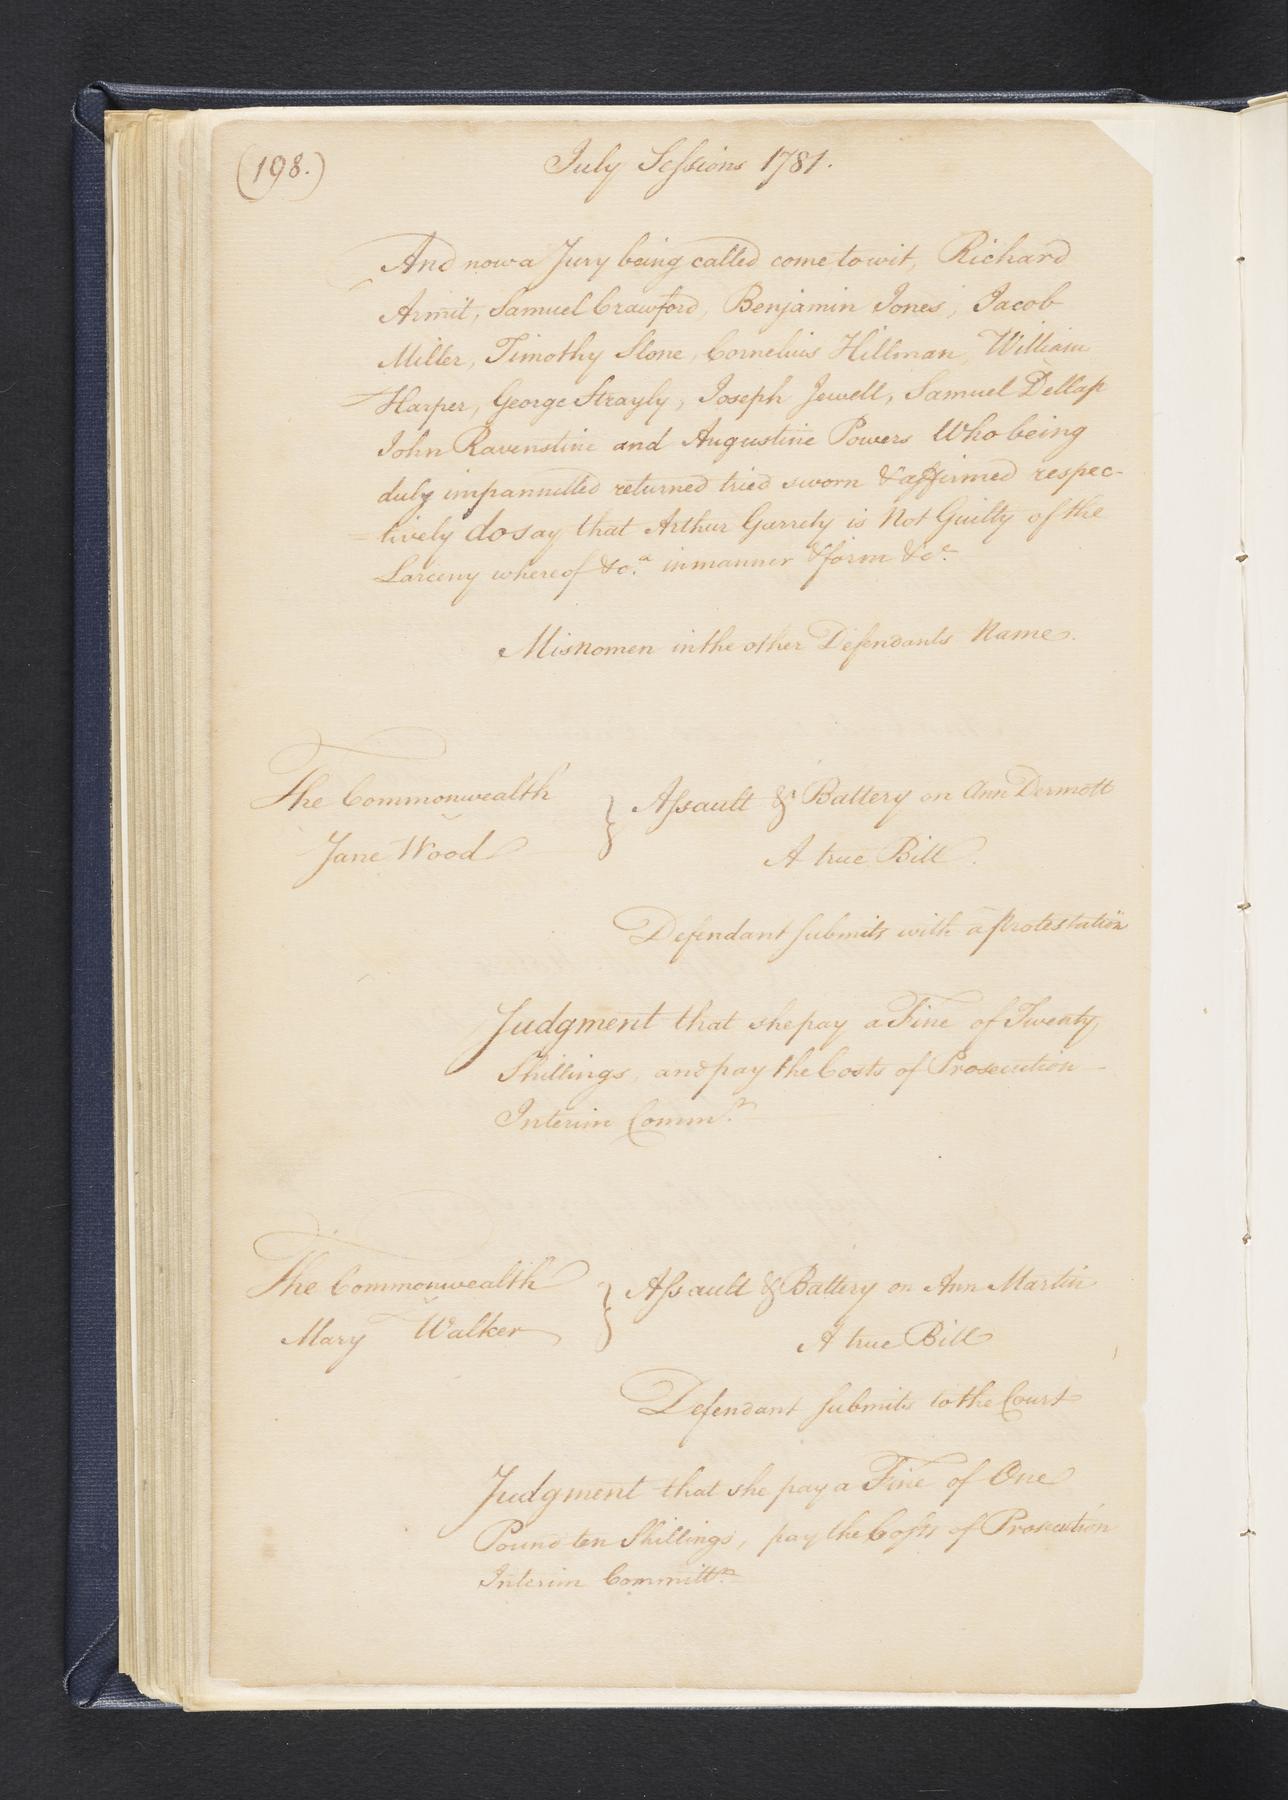 (198.)
July Sessions 1781.
And now a Jury being called come to wit, Richard
Armit, Samuel Crawford, Benjamin Jones, Jacob
Miller, Timothy Slone, Cornelius Hillman, William
Harper, George Strayly, Joseph Jewell, Samuel Dellap
John Ravenstine and Augustine Powers Who being
duly impannelled returned tried sworn & affirmed respec-
tively do say that Arthur Garrety is Not Guilty of the
Larceny whereof &c.a in manner & form &c.a
Misnomen in the other Defendants Name.
The Commonwealth
v
Jane Wood
} Assault & Battery on Ann Dermott
A true Bill.
Defendant submits with a protestation
Judgment that she pay a Fine of Twenty
Shillings, and pay the Costs of Prosecution -
Interim Comm.r
The Commonwealth
v
Mary Walker
} Assault & Battery on Ann Martin
A true Bill
Defendant submits to the Court
Judgment that she pay a Fine of One
Pound ten Shillings, pay the Costs of Prosecution
Interim Committ.r